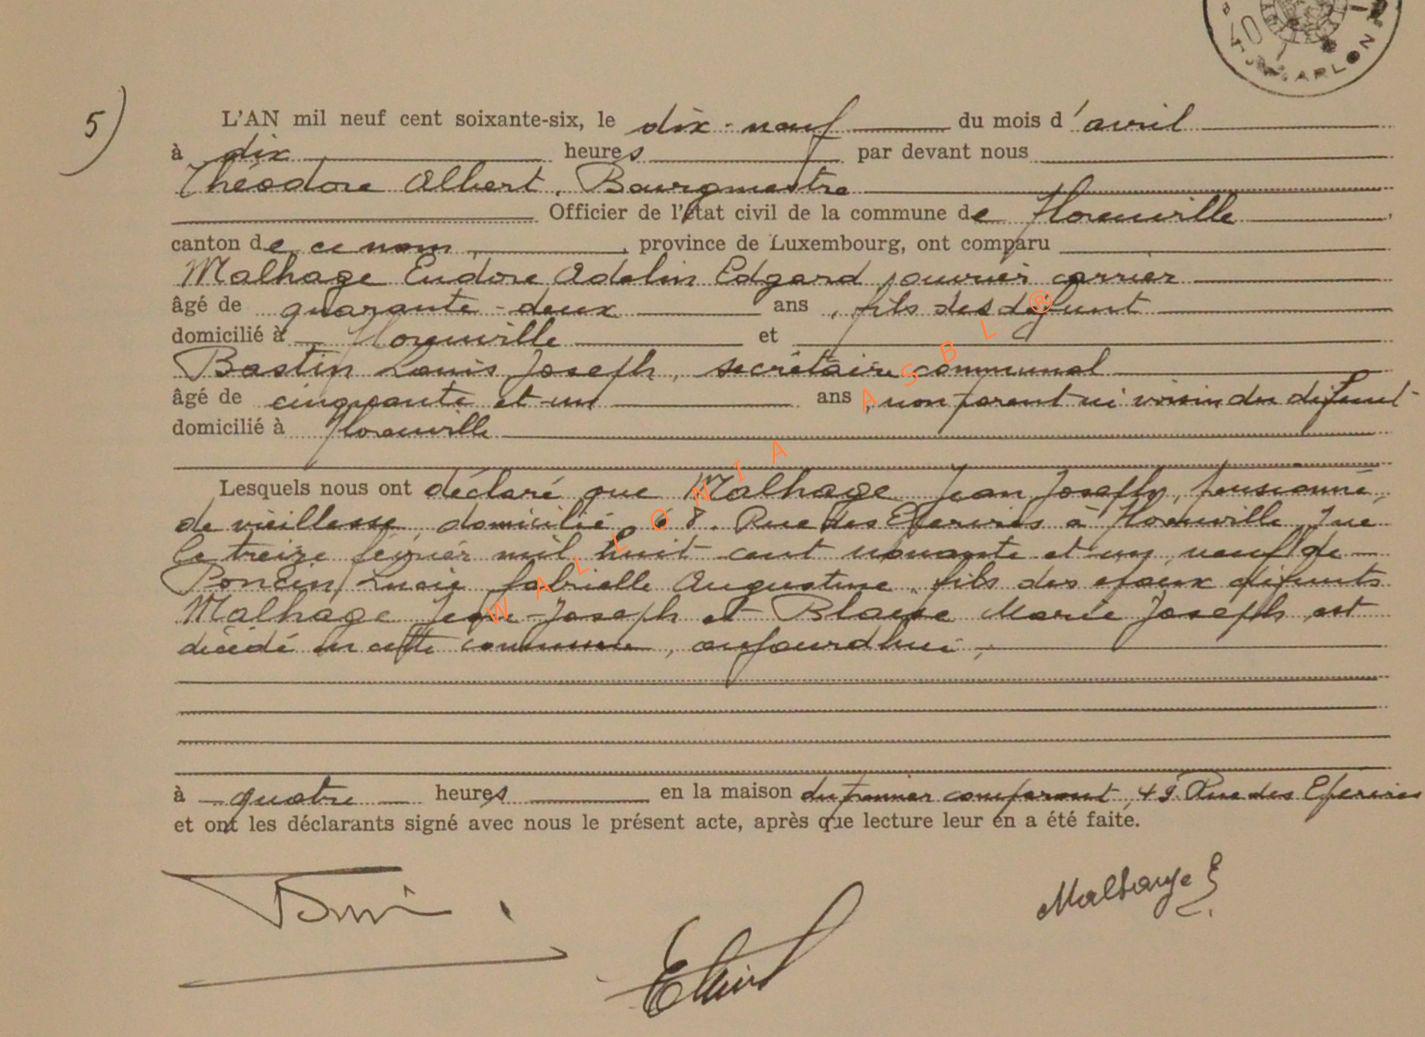 ARLON
5)
L'AN mil neuf cent soixante-six, le dix-neuf du mois d'avril
à dix heures par devant nous
Théodore Albert, Bourgmestre
Officier de l'état civil de la commune de Florenville
canton de ce nom, province de Luxembourg, ont comparu
Malhage Eudore Adelin Edgard, ouvrier carrier
âgé de quarante-deux ans, fils des défunt
domicilié à Florenville et
Bastin Louis Joseph, secrétaire communal
âgé de cinquante et un ans, non parent ni voisin du défunt
domicilié à Florenville
Lesquels nous ont déclaré que Malhage Jean Joseph, pensionné
de vieillesse, domicilié à 8. Rue des Eperires à Florenville, né
le treize février mil huit cent nonante et un, veuf de
Poncin Lucie Gabrielle Augustine, fils des époux défunts
Malhage Jean-Joseph et Blaise Marie Joseph est
décédé en cette commune, aujourd'hui,
à quatre heures en la maison du premier comparant, 49 Rue des Eperires
et ont les déclarants signé avec nous le présent acte, après que lecture leur en a été faite.
Malhage E
WALLONIA ASBL ®